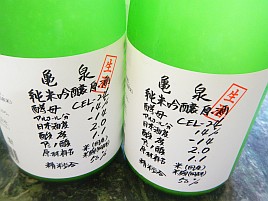 亀泉
生
純米吟醸原酒
酵母 CEL-24
アルコール分 14%
日本酒度 -14
酸度 2.0
アミノ酸 1.1
原材料名 米(国産)
米麹(国産米)
精米歩合 50%
亀泉
生
純米吟醸原酒
酵母 CEL-24
アルコール分 14%
日本酒度 -14
酸度 2.0
アミノ酸 1.1
原材料名 米(国産)
米麹(国産米)
精米歩合 50%